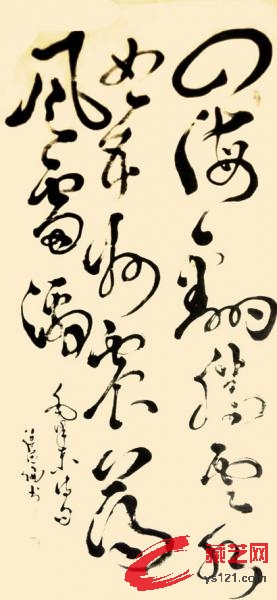 四海翻騰雲水
怒五洲震荡
风雷激
毛泽东诗句
藏艺网
ys121.com